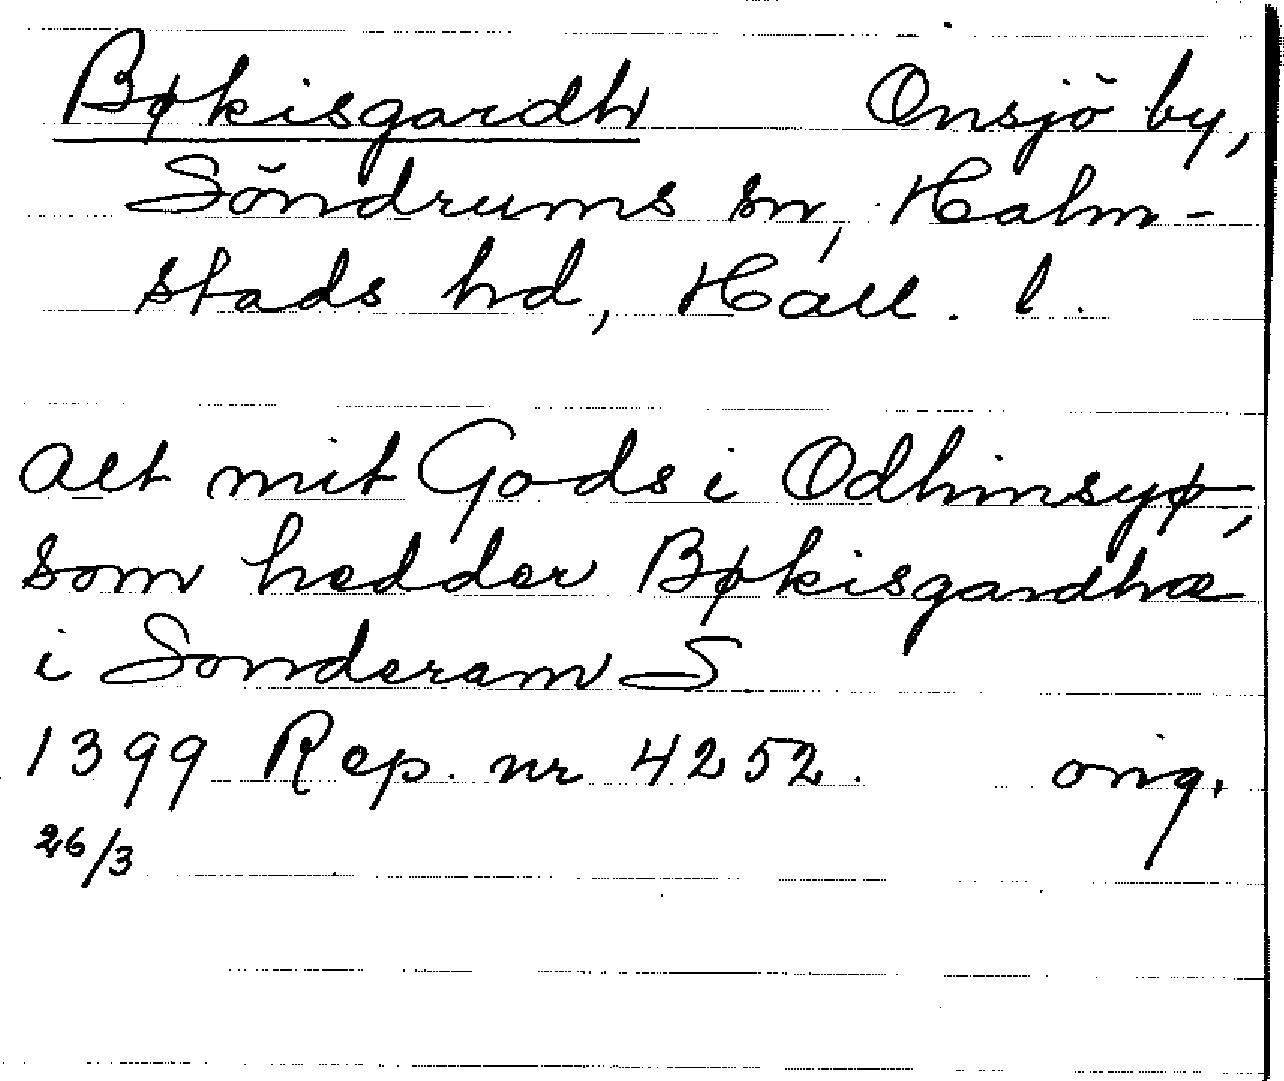 Bøkisgardh Onsjö by,
Söndrums sn, Halm-
stads hd, Hall. l.
alt mit Gods i Odhinsyø,
som hedder Bøkisgardhæ
i Sonderam S
1399 Rep. nr 4252. orig.
26/3